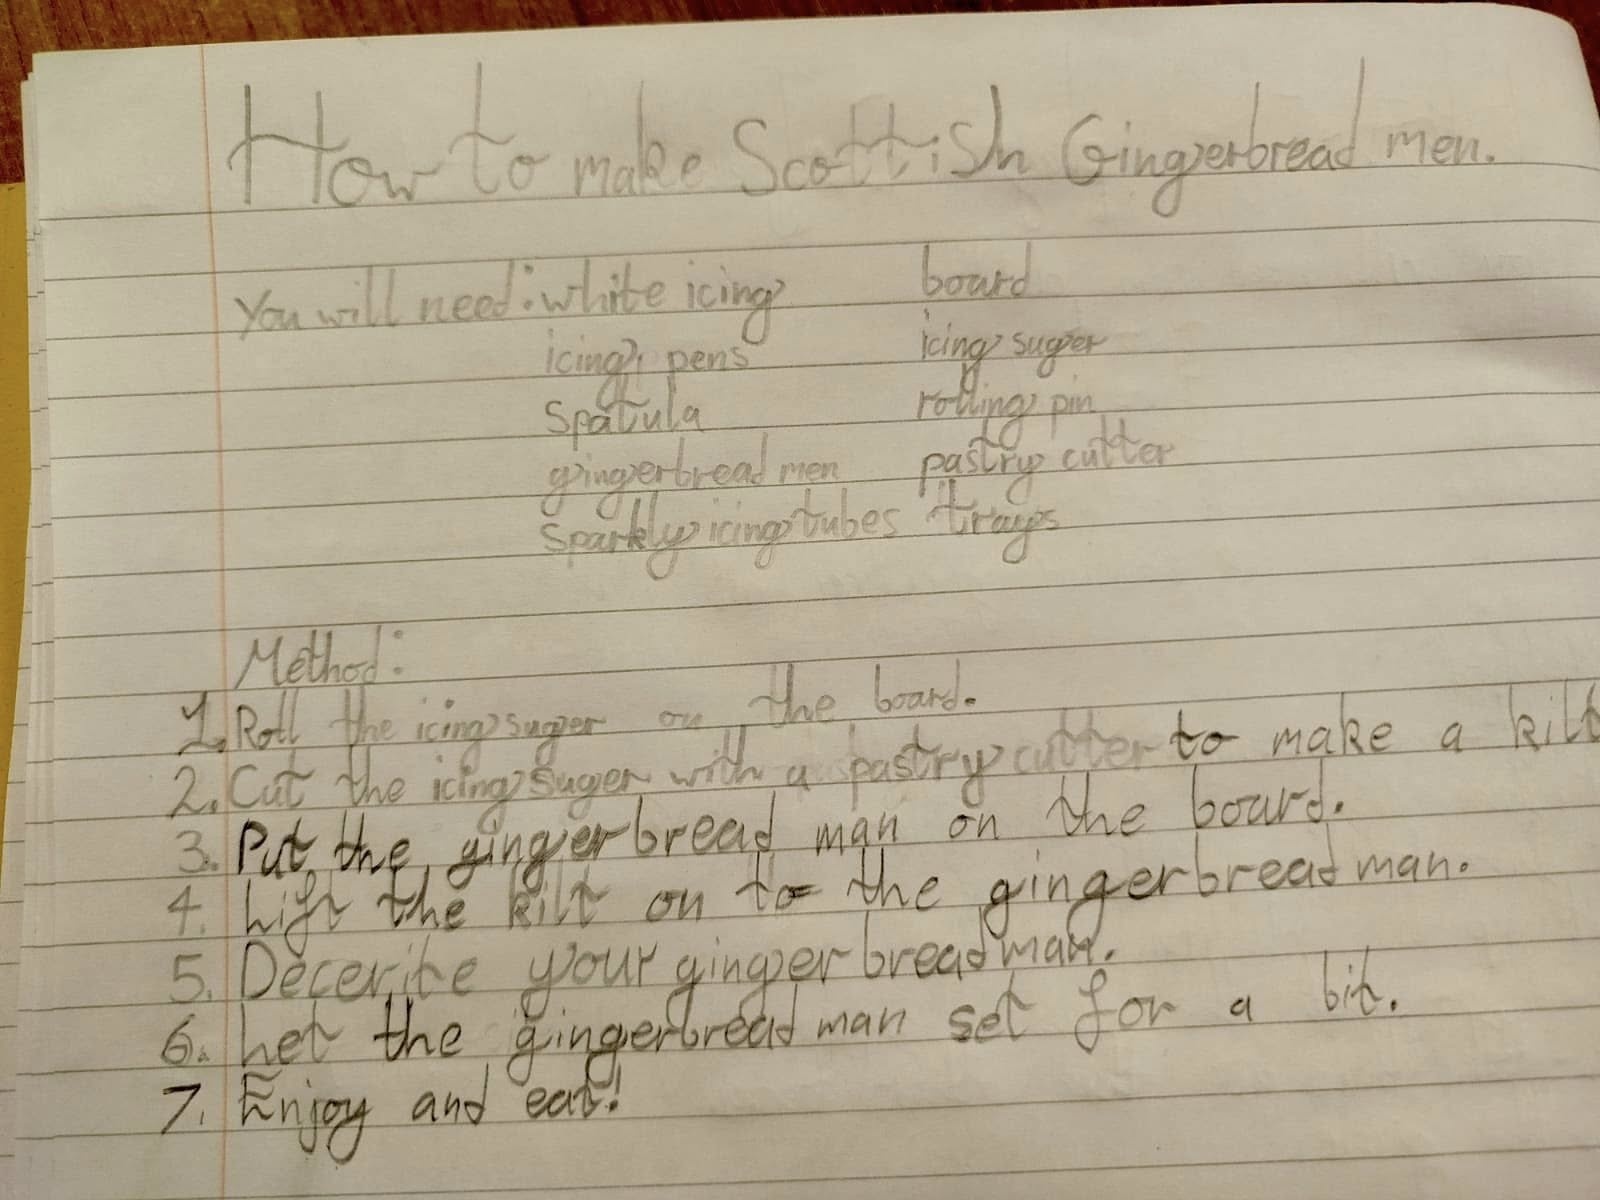 How to make Scottish Gingerbread men.
You will need: white icing board
icing pens icing suger
spatula rolling pin
gingerbread men pastry cutter
Sparkly icing tubes trays
Method:
1. Roll the icing suger on the board.
2. Cut the icing suger with a pastry cutter to make a kilt
3. Put the gingerbread man on the board.
4. Lift the kilt on to the gingerbread man.
5. Decerite your gingerbread man.
6. Let the gingerbread man set for a bit.
7. Enjoy and eat!